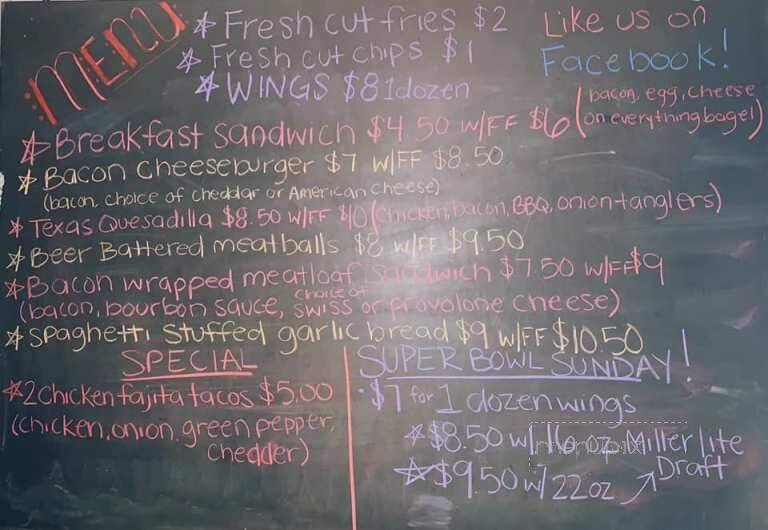 MENU
Fresh cut fries $2
Fresh cut chips $1
WINGS $8 1dozen
Like us on
Facebook!
Breakfast sandwich $4.50 w/FF $6 (bacon, egg, cheese
on everything bagel)
Bacon cheeseburger $7 w/FF $8.50
(bacon, choice of cheddar or American cheese)
Texas Quesadilla $8.50 w/FF $10 (chicken, bacon, BBQ, onion-tanglers)
Beer Battered meatballs $8 w/FF $9.50
Bacon wrapped meatloaf sandwich $7.50 w/FF $9
(bacon, bourbon sauce, choice of swiss or provolone cheese)
Spaghetti stuffed garlic bread $9 w/FF $10.50
SPECIAL
2 chicken fajita tacos $5.00
(chicken, onion, green pepper,
chedder)
SUPER BOWL SUNDAY!
$7 for 1 dozen wings
$8.50 w/ 16 oz Miller lite
$9.50 w/ 22oz Draft